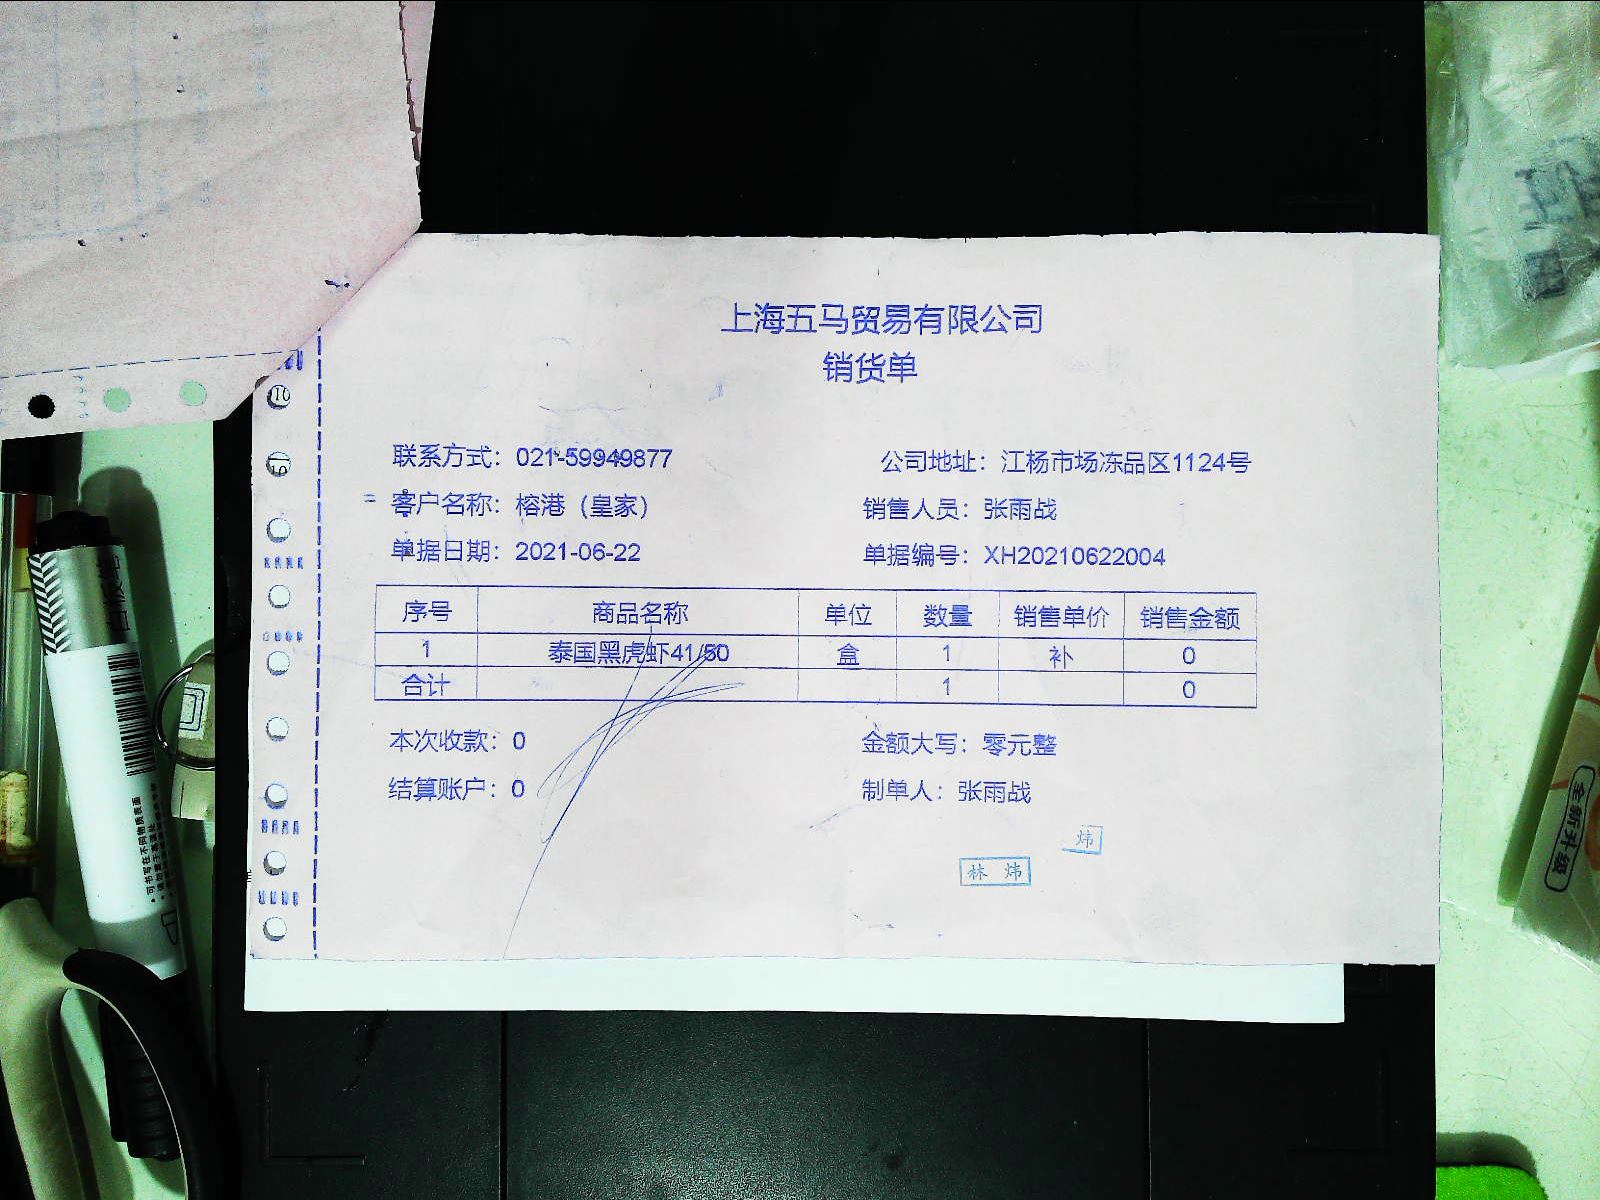 上海五马贸易有限公司
销货单
联系方式：021-59949877 公司地址：江杨市场冻品区1124号
客户名称：榕港（皇家） 销售人员：张雨战
单据日期：2021-06-22 单据编号：XH20210622004
序号 商品名称 单位 数量 销售单价 销售金额
1 泰国黑虎虾41/50 盒 1 补 0
合计 1 0
本次收款：0 金额大写：零元整
结算账户：0 制单人：张雨战
炜
林 炜
全新升级
可书写在不同物质表面